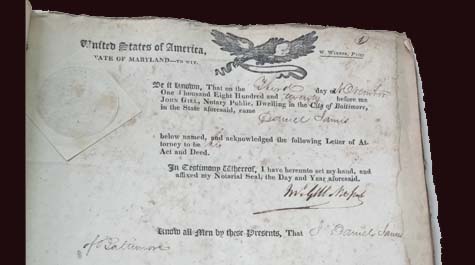 United States of America,
W. WARNER, Print
STATE OF MARYLAND—TO WIT.
Be it known, That on the Third day of November
One Thousand Eight Hundred and twenty before me
JOHN GILL, Notary Public, Dwelling in the City of Baltimore,
in the State aforesaid, came
Daniel James
below named, and acknowledged the following Letter of At-
torney to be his
Act and Deed.
In Testimony Whereof, I have hereunto set my hand, and
affixed my Notarial Seal, the Day and Year aforesaid.
Know all Men by these Presents, That I Daniel James
of Baltimore